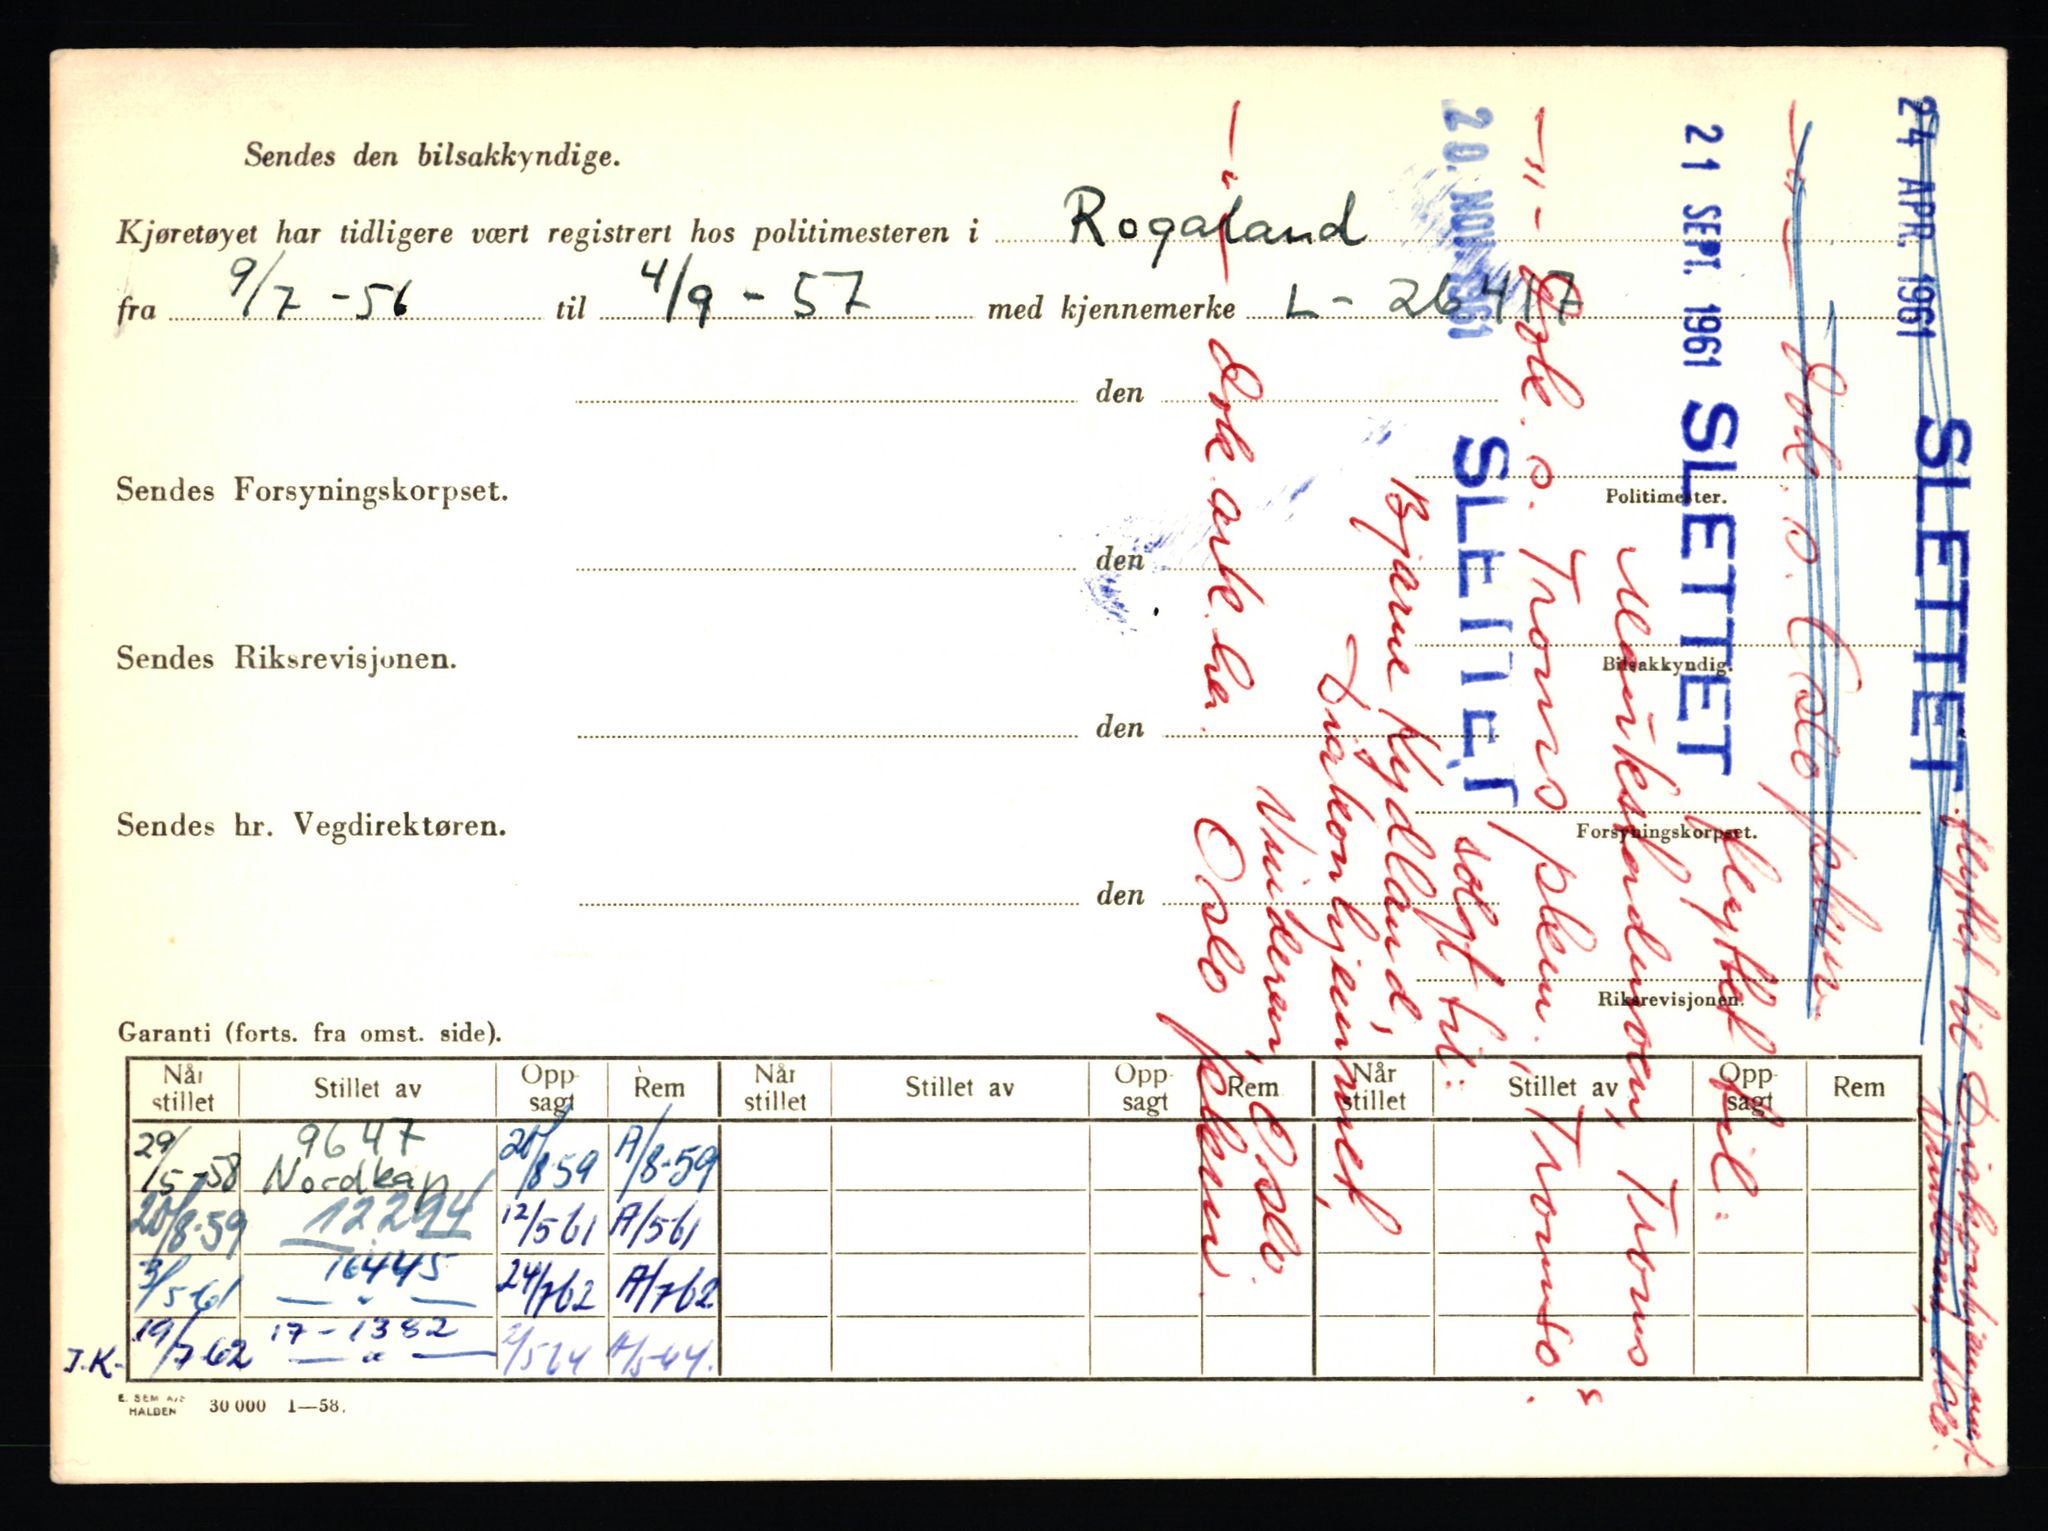 Sendes den bilsakkyndige.
Kjøretøyet har tidligere vært registrert hos politimesteren i Rogaland
fra 9/7 - 56 til 4/9 - 57 med kjennemerke L - 26417
den
Politimester.
Sendes Forsyningskorpset.
den
Bilsakkyndig.
Sendes Riksrevisjonen.
den
Forsyningskorpset.
Sendes hr. Vegdirektøren.
den
Riksrevisjonen.
Garanti (forts. fra omst. side).
Når stillet Stillet av Opp- sagt Rem Når stillet Stillet av Opp- sagt Rem Når stillet Stillet av Opp- sagt Rem
29/5-58 9647 Nordkap 20/8-59 A/8-59
20/8-59 12294 12/5 61 A/5 61
3/5-61 — 16445 " — 24/7 62 A/7 62
J.K- 19/7-62 17-1382 — " — 2/5 64 A/5-64.
E. SEM A/S HALDEN 30 000 1—58.
24 APR. 1961 SLETTET
flyttet til Diakonhjemmet
Vinderen, Oslo.
o. Oslo pkm
21 SEPT. 1961 SLETTET
flyttet til:
Troms
— " — o. Troms pkm., Tromsø.
20. NOV. 1961 SLETTET
solgt til:
Bjarne Kydland,
Diakonhjemmet,
Vinderen, Oslo.
— " — her.
Oslo pkm.